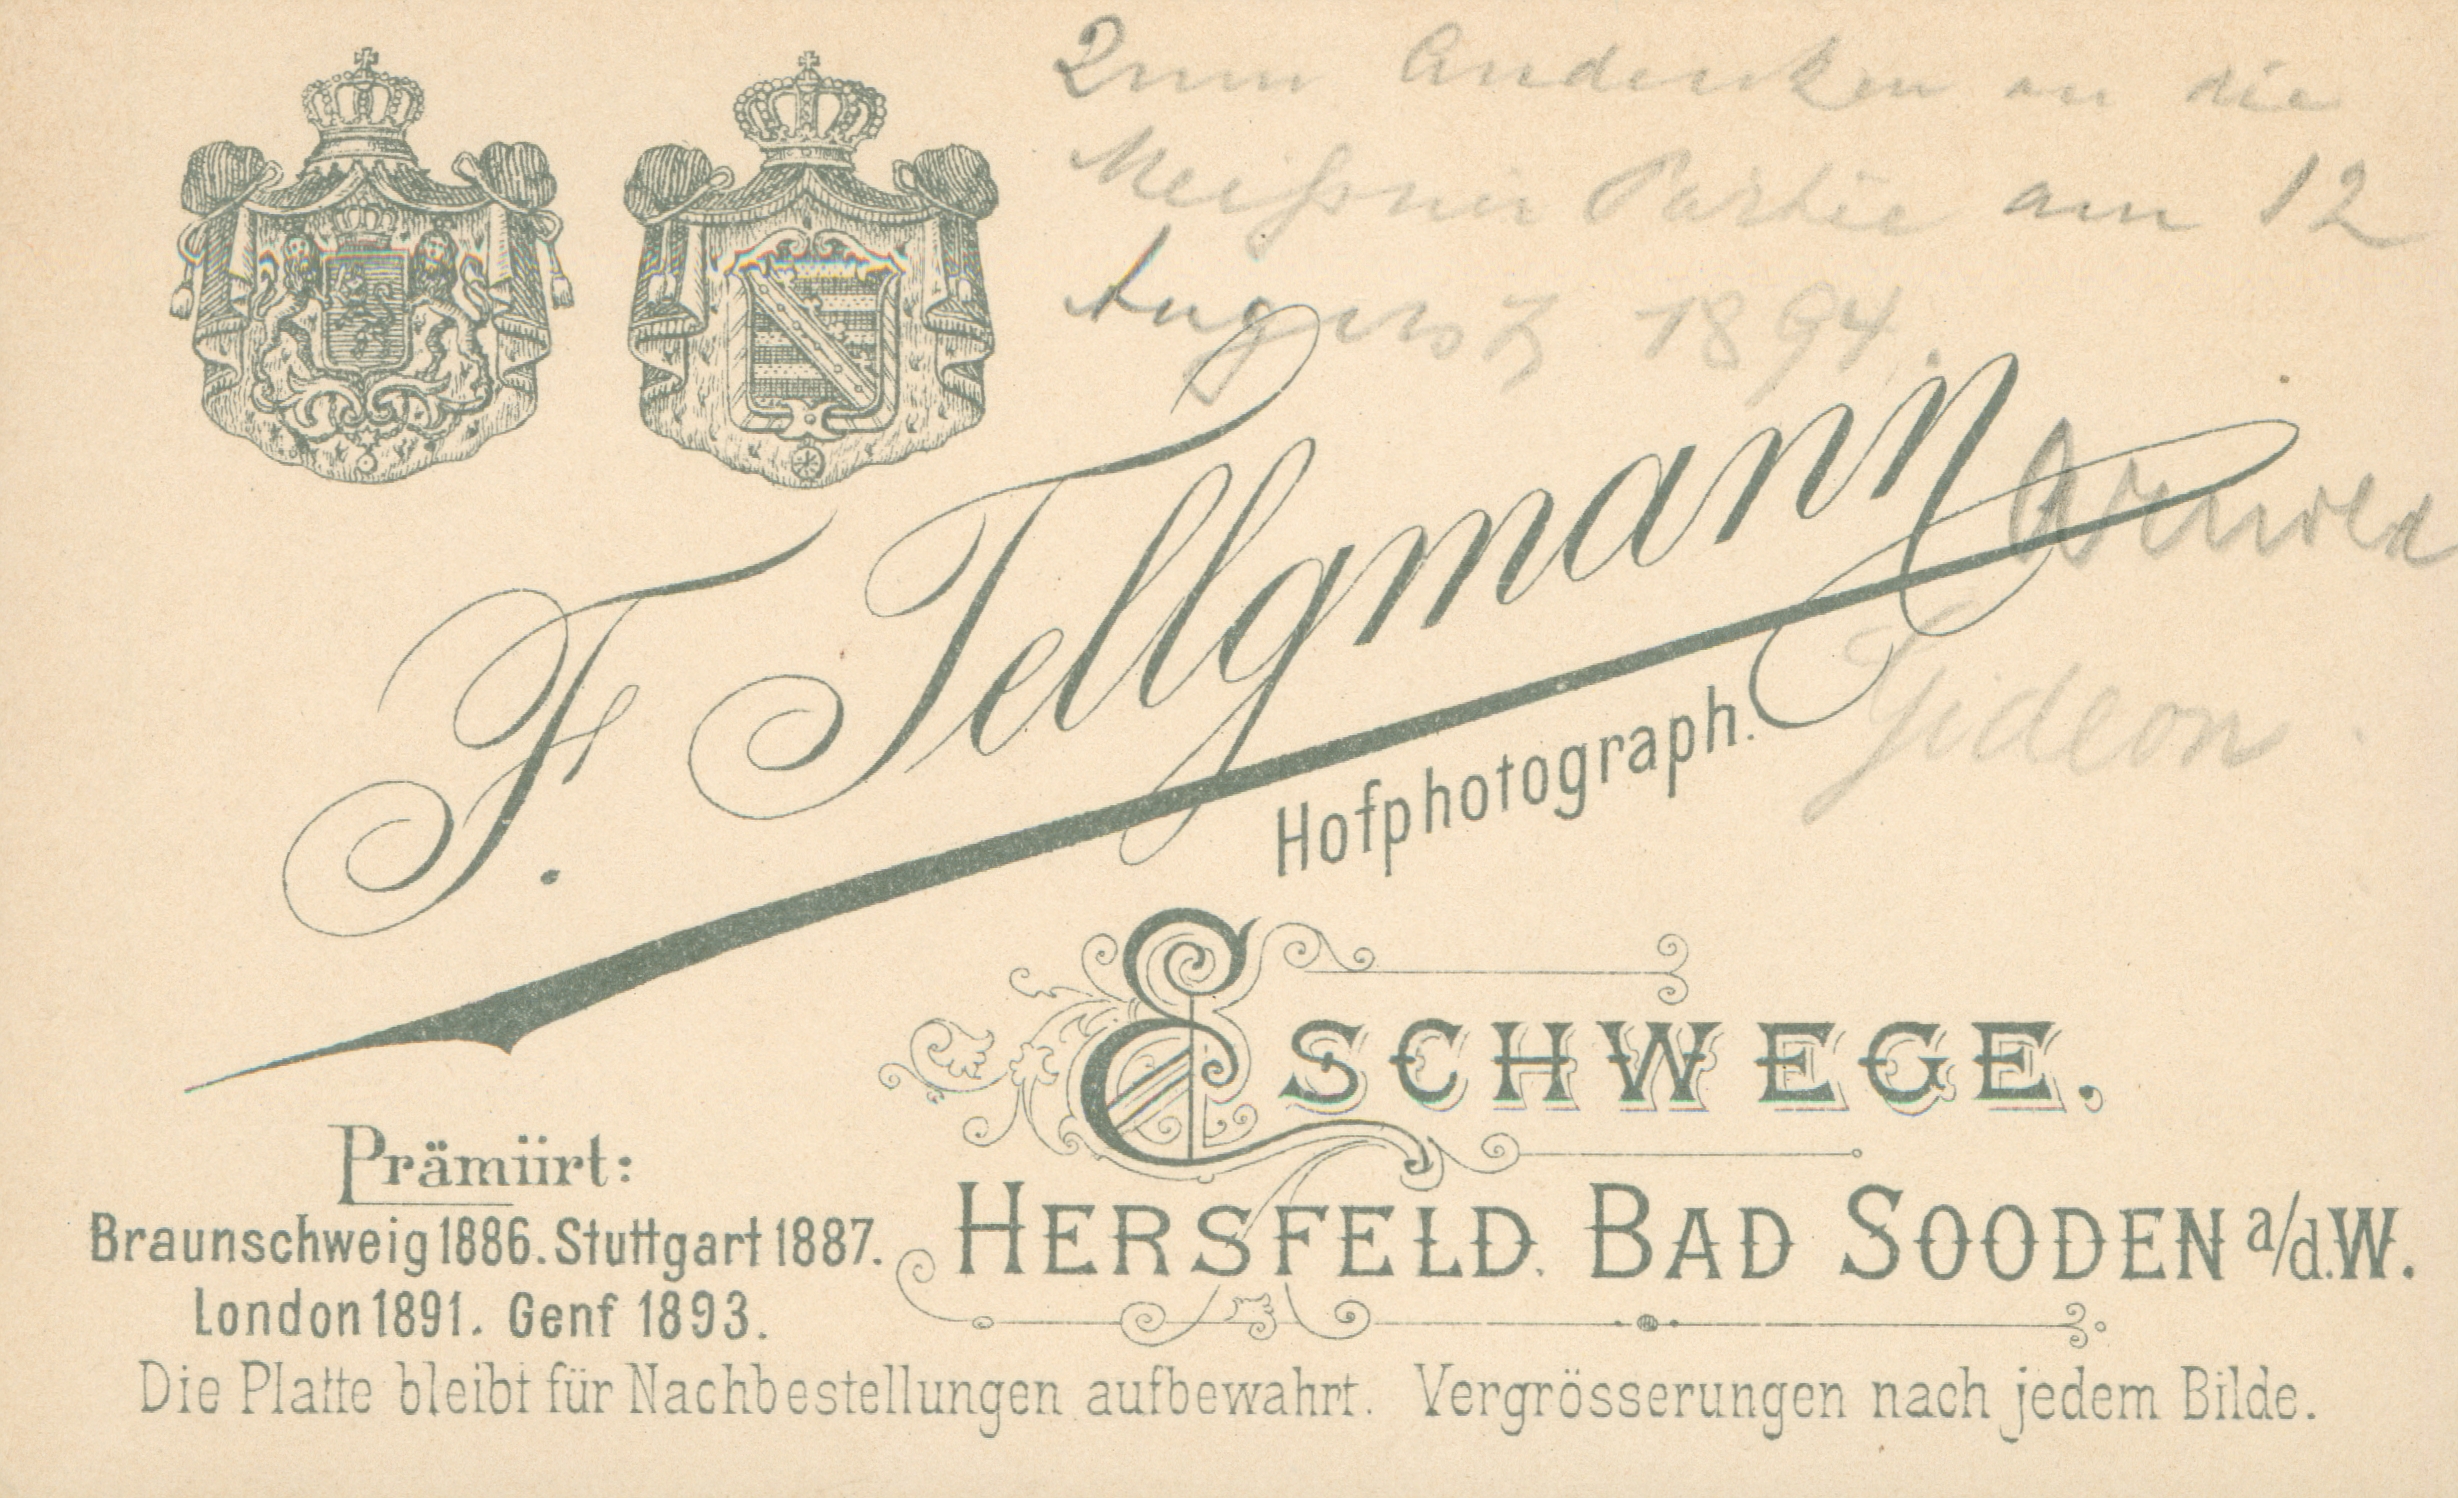 Zum Andenken an die
Meißner Partie am 12
August 1894.
Arnold
Gideon.
F. Tellgmann
Hofphotograph.
ESCHWEGE.
HERSFELD. BAD SOODEN a/d.W.
Prämiirt:
Braunschweig 1886. Stuttgart 1887.
London 1891. Genf 1893.
Die Platte bleibt für Nachbestellungen aufbewahrt. Vergrösserungen nach jedem Bilde.